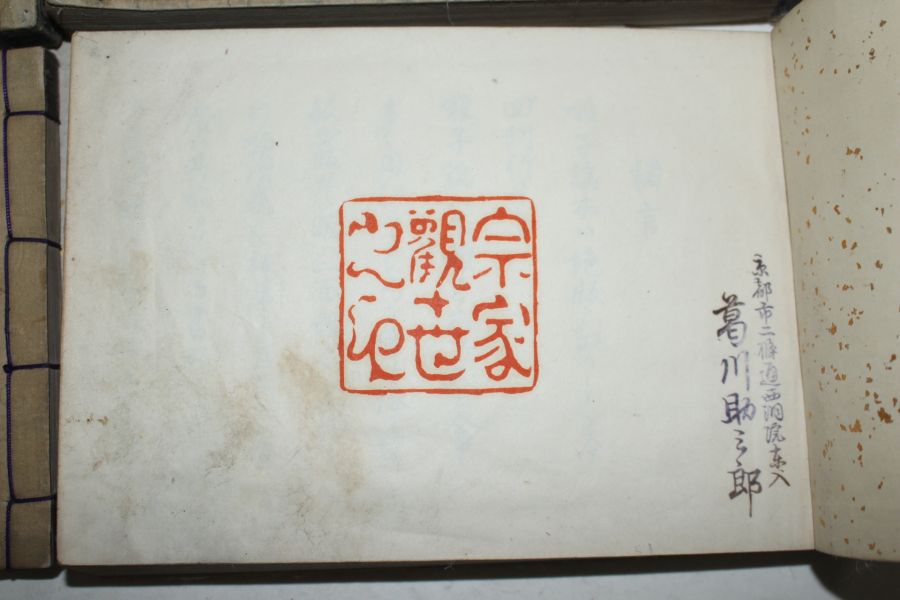 京都市二條通西洞院東入
葛川助三郎
宗家
觀世